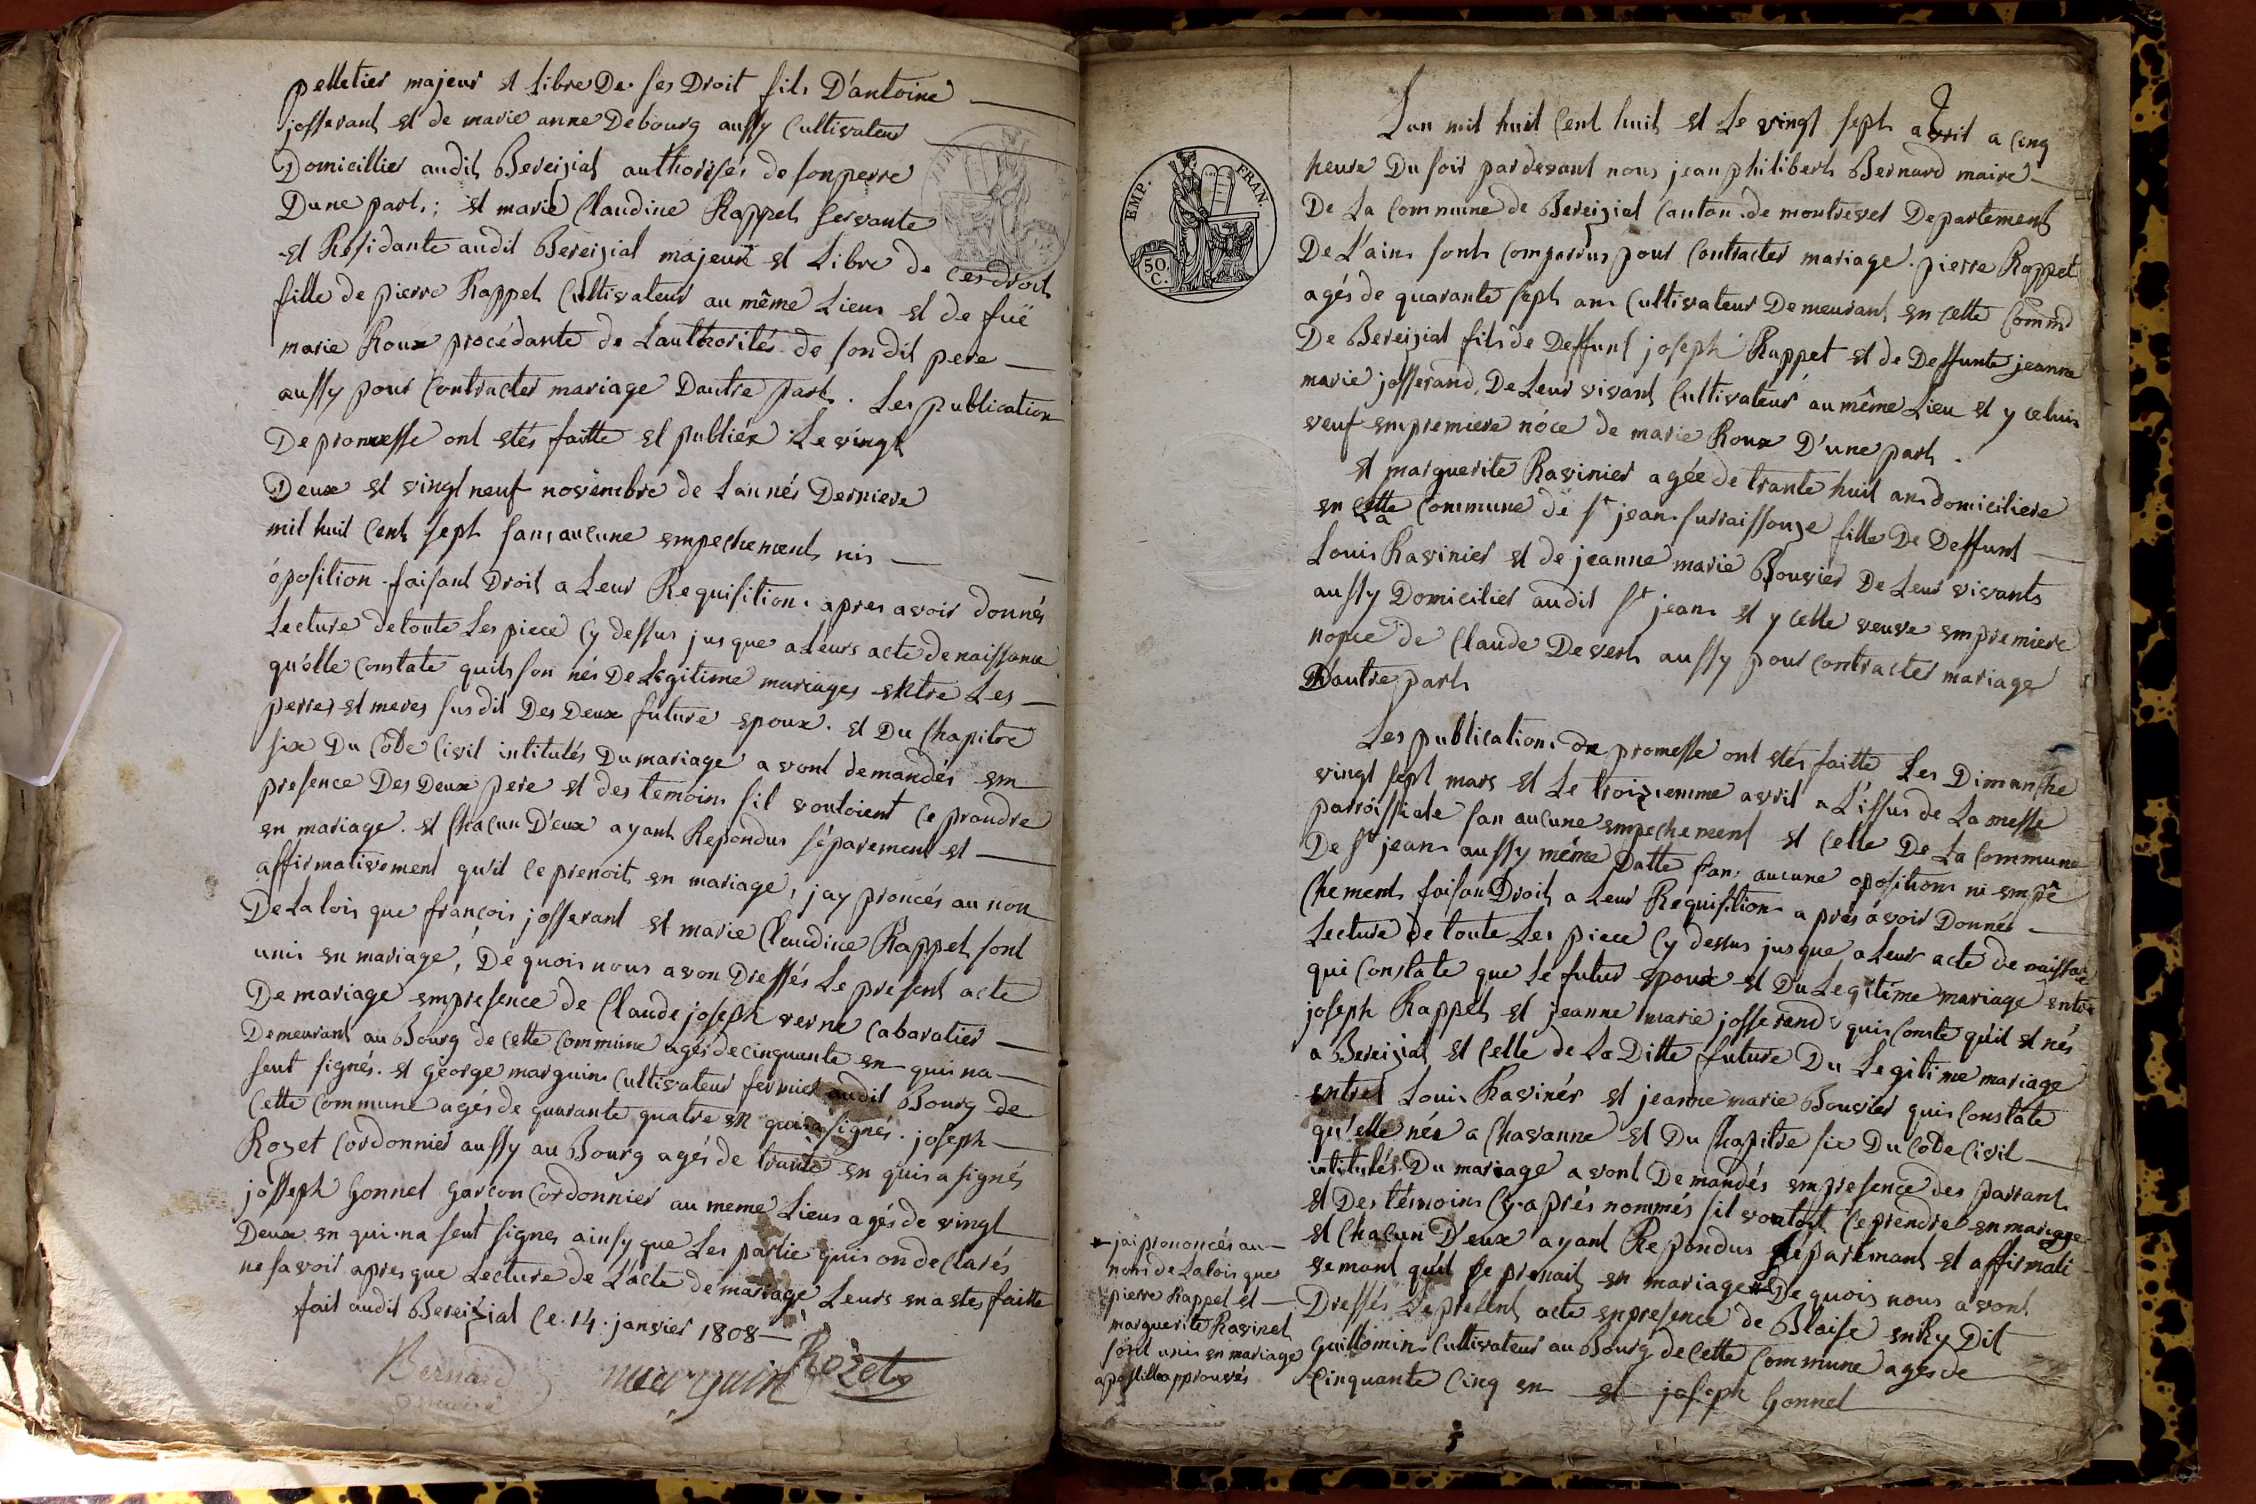 pelletier majeur et libre De ses Droit fils D'antoine
josserant et de marie anne Debourg aussy Cultivateur
Domicillier audit Bereiziat authorisés de son perre
Dune part ; et marie Claudine Rappet servante
et Residante audit Bereiziat majeur et Libre de ces droit
fille de pierre Rappet Cultivateur au même Lieux et de fuë
marie Roux procédante de Lauthorités de son dit pere
aussy pour Contracter mariage Dautre part. Les publication
De promesse ont etés faitte et publiéx Le vingt
Deux et vingt neuf novembre de Lannés Derniere
mil huit Cent sept sans aucune empechement nis
óposition faisant Droit a Leur Requisition. apres avoir donnés
Lecture de toute Les piece Cy dessus jusque a Leurs acte de naissance
qu'elle Constate quils son nés De Legitime mariages entre Les
perres et meres susdit Des Deux future epoux. et Du Chapitre
six Du Côde Civil intitulés Du mariage avont demandés em
presence Des Deux pere et des temoins sil vouloient ce prandre
en mariage. et Chacun D'eux ayant Repondus séparement et
affirmativement qu'il ce prenoit en mariage, jay proncés au non
De La lois que françois josserant et marie Claudine Rappet sont
unis en mariage, De quois nous avon Dressés Le present acte
De mariage empresence de Claude joseph verne Cabaratier
Demeurant au Bourg de Cette Commune agés de cinquante en quis na
seut signés. et George marguin Cultivateur fermier audit Bourg de
Cette Commune agés de quarante quatre en quis a signés. joseph
Rozet Cordonnier aussy au Bourg agés de trante en quis a signés
josseph Gonnet Garcon Cordonnier au meme Lieux agés de vingt
Deux en qui na seut signes ainsy que Les partie quis on declarés
ne savoir apres que Lecture de L'acte de mariage Leurs en a etes faitte
fait audit Bereiziat Ce. 14. janvier 1808
Bernard
maire
marguin
Rozet
EMP. FRAN.
50.
C.
Lan mil huit Cent huit et Le vingt sept avril a Cinq
heure Du soir par devant nous jean philibert Bernard maire
De La Commune de Bereiziat Canton de montrevel Departement
De L'ain sont comparrus pour Contracter mariage. pierre Rappet
agés de quarante sept ans Cultivateur Demeurant en Cette Comme
De Bereiziat fils de Deffunt joseph Rappet et de Deffunte jeanne
marie josserand, De Leur vivant Cultivateur au même Lieu et y celuis
veuf empremiere nóce de marie Roux D'une part.
et marguerite Ravinier agée de trante huit ans domiciliere
en Cette Commune de st jean surraissouze fille De Deffunt
La
Louis Ravinier et de jeanne marie Bouvier De Leur vivants
aussy Domicilier audit st jean et y celle veuve empremiere
nopce de Claude Devert aussy pour contracter mariage
D'autre part
Les publications de promesse ont etés faitte Les Dimanche
vingt sept mars et Le troiziemme avril a L'issus de La messe
parroissiale san aucune empechement et Celle De La Commune
De st jean aussy même Datte san aucune oposition ni empê
Chement faisan Droit a Leur Requisition après avoir Donnés
Lecture de toute Les piece Cy dessus jusque a Leur acte de naissance
qui Constate que Le futur epoux et Du Legitime mariage entre
joseph Rappet et jeanne marie josserand quis Conste quil et nés
a Bereiziat et Celle de La Ditte future Du Legitime mariage
entre Louis Ravinér et jeanne marie Bouvier quis Constate
qu'elle née a Chavanne et Du Chapitre six Du Côde Civil
intitulés Du mariage avont Demandés empresence des parrant
et Des témoins Cy après nommés sil vouloit Ce prendre en mariage
et Chacun D'eux ayant Repondus separémant et affirmati
vemant quil se prenait en mariage De quois nous avont
Dressés Le present acte en presence de Blaise enRy Dit
Guillomin Cultivateur au Bourg de Cette Commune agés de
Cinquante Cinq en et joseph Gonnet
jai prononcés au
nom de La lois que
pierre Rappet et
marguerite Ravinet
sont unis en mariage
apostille approuvés